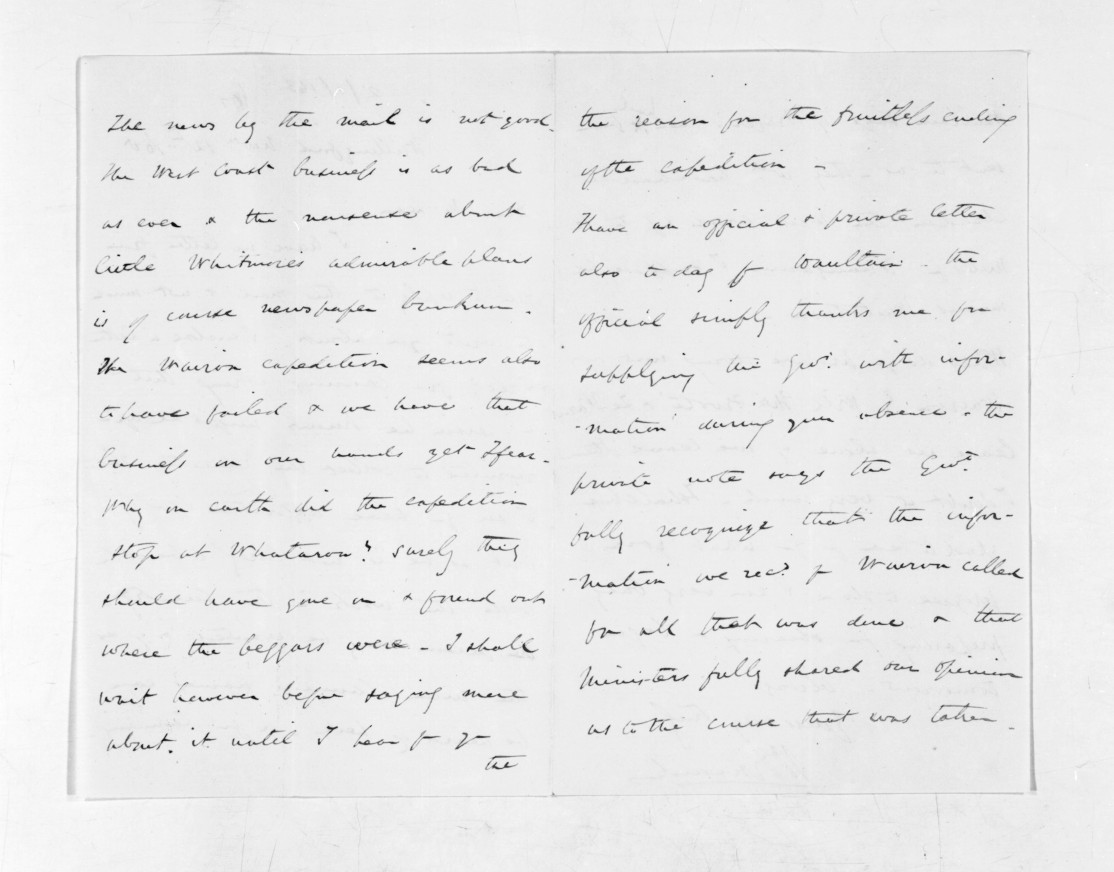 The news by the mail is not good.
The West Coast business is as bad
as ever & the nonsense about
little Whitmore's admirable plans
is of course newspaper bunkum.
The Wairoa expedition seems also
to have failed & we have that
business on our hands yet I fear.
Why on earth did the expedition
stop at Whataroa? surely they
should have gone on & found out
where the beggars were - I shall
wait however before saying more
about it until I hear f
the
the reason for the fruitless ending
of the expedition -
I have an official & private letter
also to day f Haultain - the
official simply thanks me for
supplying the Govt. with infor-
-mation during your absence - the
private note says the Govt.
fully recognize that the infor-
-mation we recd. f Wairoa called
for all that was done & that
Ministers fully shared our opinion
as to the course that was taken -